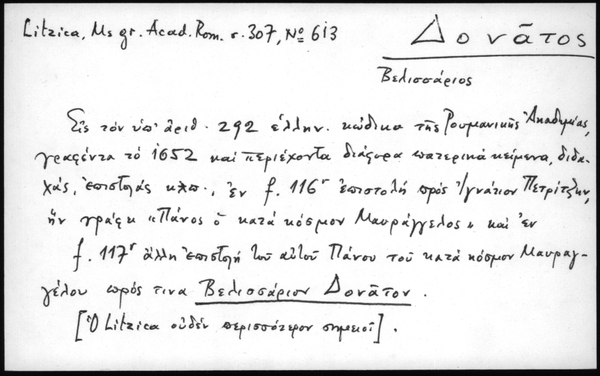 Litzica, Ms gr. Acad. Rom. σ. 307, Nº 613
Δονᾶτος
Βελισσάριος
Εἰς τὸν ὑπ' ἀριθ. 292 ἑλλην. κώδικα τῆς Ρουμανικῆς Ἀκαδημίας,
γραφέντα τὸ 1652 καὶ περιέχοντα διάφορα πατερικὰ κείμενα, διδα-
χάς, ἐπιστολάς κλπ., ἐν f. 116ʳ ἐπιστολὴ πρὸς Ἰγνάτιον Πετρίτζην,
ἣν γράφει "Πάνος ὁ κατὰ κόσμον Μαυράγγελος" καὶ ἐν
f. 117ʳ ἄλλη ἐπιστολὴ τοῦ αὐτοῦ Πάνου τοῦ κατὰ κόσμον Μαυραγ-
γέλου πρός τινα Βελισσάριον Δονᾶτον.
[Ὁ Litzica οὐδὲν περισσότερον σημειοῖ].